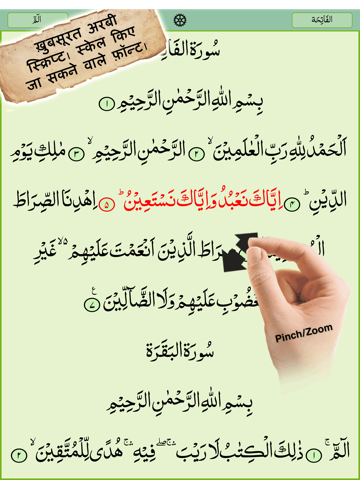 الٓمّٓ
الفَاتِحَة
ख़ुबसूरत अरबी
स्क्रिप्ट। स्केल किए
जा सकने वाले फ़ॉन्ट।
سُوۡرَةُ الفَا
بِسۡمِ اللهِ الرَّحۡمٰنِ الرَّحِيۡمِ ۝۱
اَلۡحَمۡدُ لِلّٰهِ رَبِّ الۡعٰلَمِيۡنَۙ‏ ۝۲ الرَّحۡمٰنِ الرَّحِيۡمِۙ‏ ۝۳ مٰلِكِ يَوۡمِ
الدِّيۡنِؕ‏ ۝۴ اِيَّاكَ نَعۡبُدُ وَاِيَّاكَ نَسۡتَعِيۡنُؕ‏ ۝۵ اِهۡدِنَا الصِّرَاطَ
رَاطَ الَّذِيۡنَ اَنۡعَمۡتَ عَلَيۡهِمۡ ۙ۬ۦ غَيۡرِ
غۡضُوۡبِ عَلَيۡهِمۡ وَلَا الضَّآلِّيۡنَ ۝۷
Pinch/Zoom
سُوۡرَةُ البَقَرَة
بِسۡمِ اللهِ الرَّحۡمٰنِ الرَّحِيۡمِ
الٓمّٓ ۚ‏ ۝۱ ذٰلِكَ الۡڪِتٰبُ لَا رَيۡبَ ۛۚ ۖ فِيۡهِ ۛۚ هُدًى لِّلۡمُتَّقِيۡنَۙ‏ ۝۲